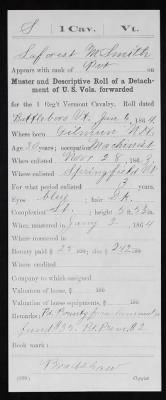 S 1 Cav. Vt.
Laforest M Smith
Appears with rank of Pvt on
Muster and Descriptive Roll of a Detach-
ment of U. S. Vols. forwarded
for the 1 Reg't Vermont Cavalry. Roll dated
Brattleboro Vt. Jan 6, 1864.
Where born Gilsum N.H.
Age 30 years; occupation Machinist
When enlisted Nov 28, 1863.
Where enlisted Springfield Vt
For what period enlisted 3 years.
Eyes Blue; hair Dk.
Complexion Lt.; height 5 ft. in.
When mustered in Jany 2, 1864
Where mustered in
Bounty paid $ 100; due $ 100
Where credited
Company to which assigned
Valuation of horse, $ 100
Valuation of horse equipments, $ 100
Remarks: Pd. Bounty from
fund $ Pd. Prem. $2
Book mark:
Bradshaw
Copyist.